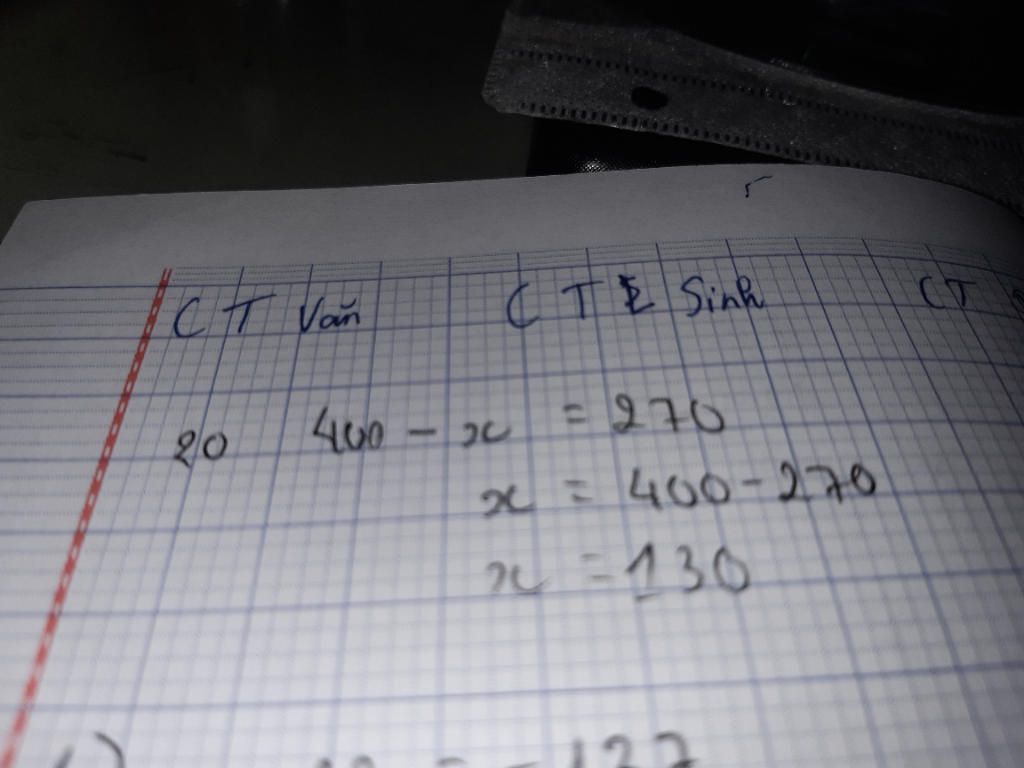 CT Văn CT Sinh CT
20 400 - x = 270
x = 400 - 270
x = 130